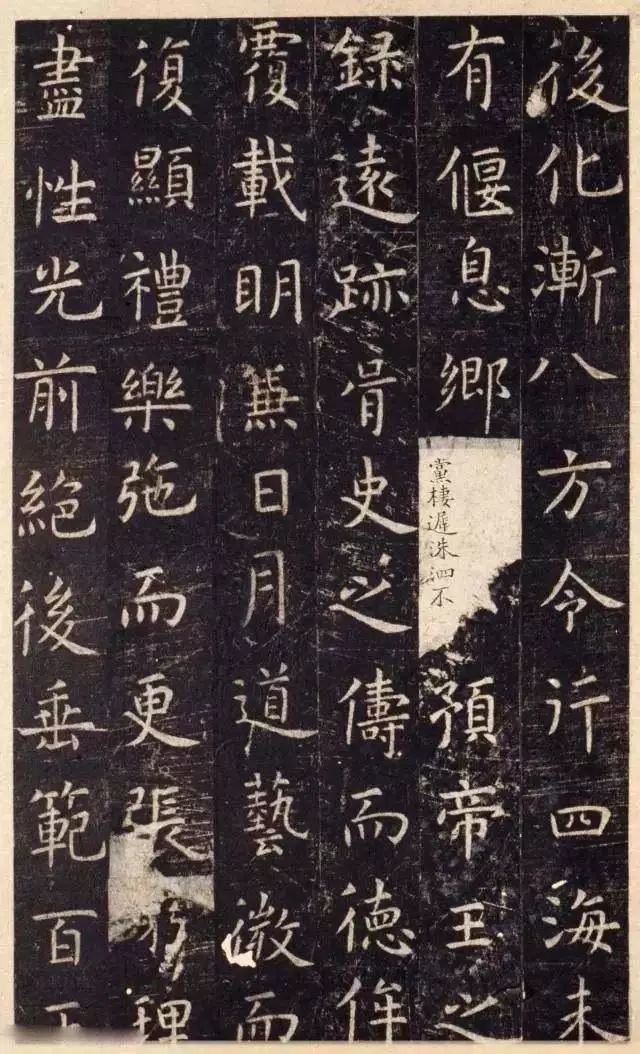 後化漸八方令行四海未
有偃息鄉
黨棲遲洙泗不
預帝王之
録遠跡胥史之儔而德侔
覆載明兼日月道藝微而
復顯禮樂弛而更張理
盡性光前絶後垂範百